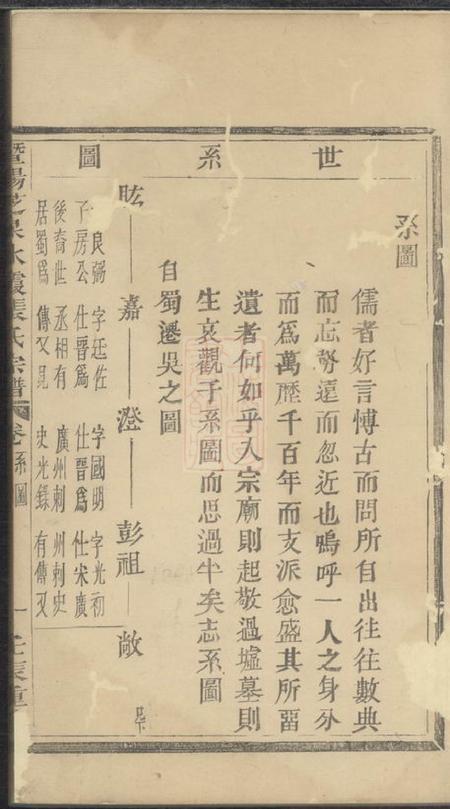 系圖
儒者好言博古而問所自出往往數典
而忘努遠而忽近也嗚呼一人之身分
而爲萬歷千百年而支派愈盛其所畱
遺者何如乎入宗廟則起敬過墟墓則
生哀觀于系圖而思過半矣志系圖
自蜀遷吳之圖
世系圖
眩 嘉 澄 彭祖 敞
良弼 字廷佐 字國明 字光初
子房公 仕晉爲 仕晉爲 仕宋廣
後裔世 丞相有 廣州刺 州刺史
居蜀爲 傳又見 史光錄 有傳又
暨陽 水霞張氏宗譜 卷 系圖 一 壬辰重